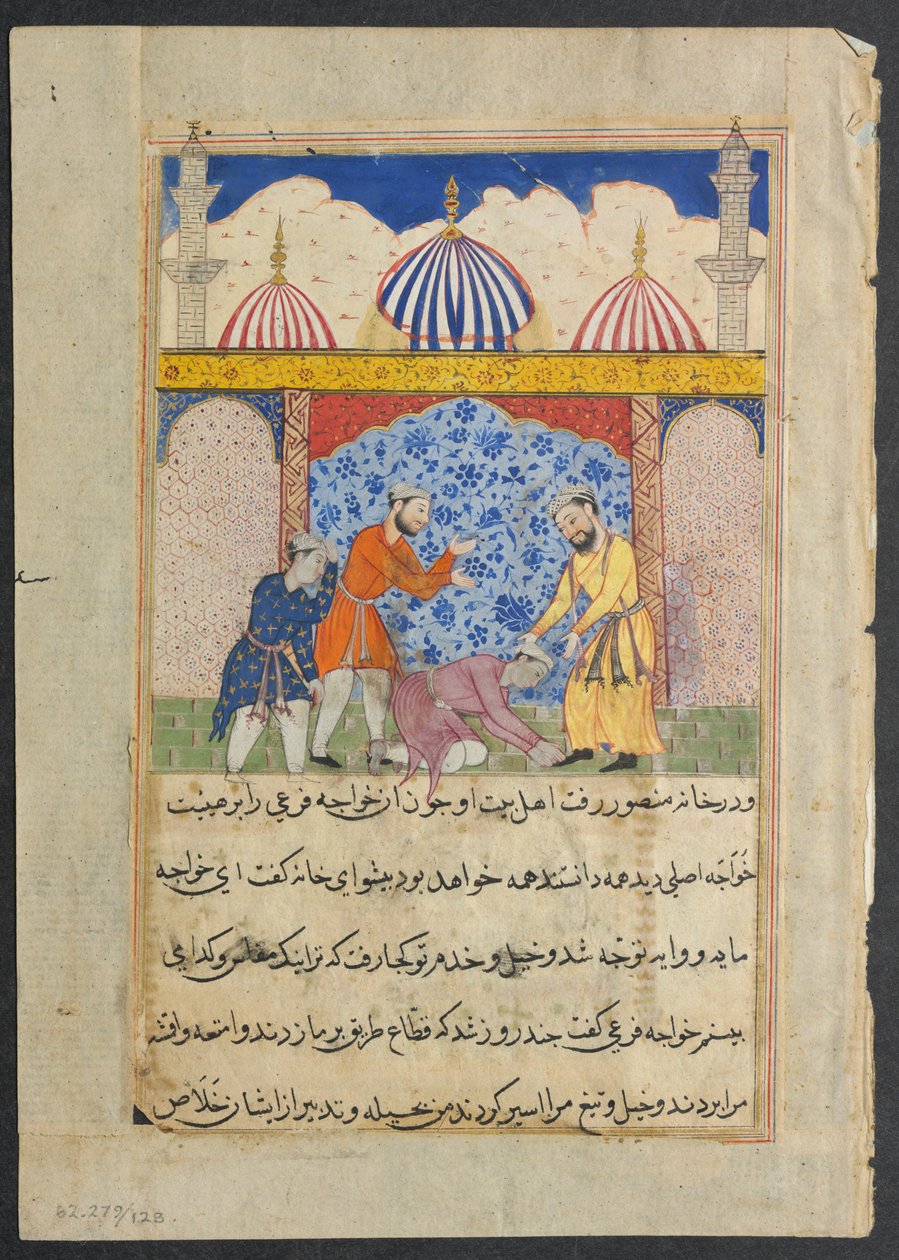 و در خانه منصور رفت اهل بیت او جون ان خواجه فرعی را بر هیئت
خَوَاجَه اصلی دید همه دانستند همه خواهد بود بیشوای خانه کفت ای خواجه
مایه و وایه توجّه شد و خیل و خدم تو کجا رفت که ترا اینک مفلس و کدا می
بینم خواجه فرعی کفت جند روز شد که قطّاع طریق بر ما زدند و امتعه و اقشه
مرا بردند و خیل و تیغ مرا اسیر کردند من بحیله و تدبیر از ایشان خَلَاص
62.279/128.